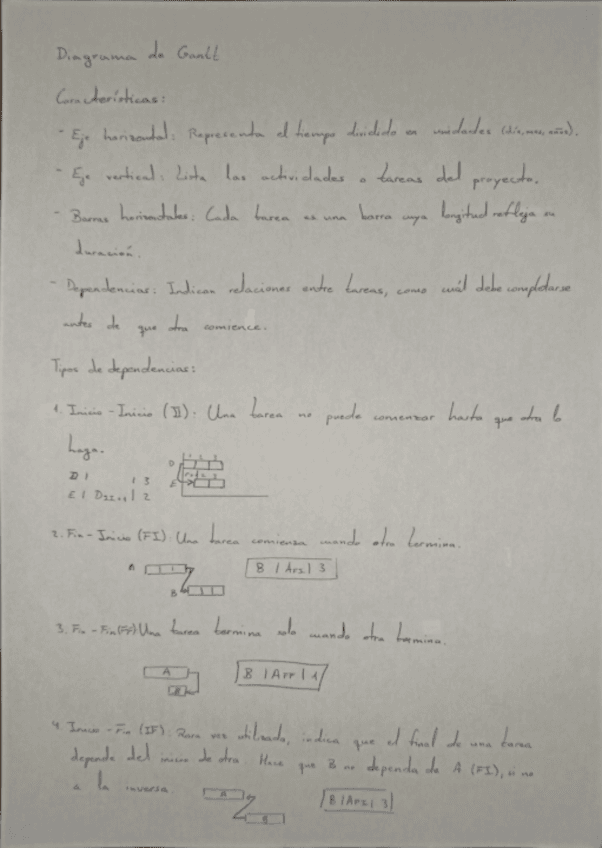 Diagrama de Gantt
Características:
- Eje horizontal: Representa el tiempo dividido en unidades (día, mes, años).
- Eje vertical: Lista las actividades o tareas del proyecto.
- Barras horizontales: Cada tarea es una barra cuya longitud refleja su
duración.
- Dependencias: Indican relaciones entre tareas, como cuál debe completarse
antes de que otra comience.
Tipos de dependencias:
1. Inicio - Inicio (II): Una tarea no puede comenzar hasta que otra lo
haga.
D | | 3
E | | 2
D
E
2. Fin - Inicio (FI): Una tarea comienza cuando otra termina.
A
B
B | | 3
3. Fin - Fin (FF) Una tarea termina solo cuando otra termina.
A
B
B | | 1
4. Inicio - Fin (IF): Rara vez utilizada, indica que el final de una tarea
depende del inicio de otra. Hace que B no dependa de A (FI), si no
a la inversa.
B
B | | 3